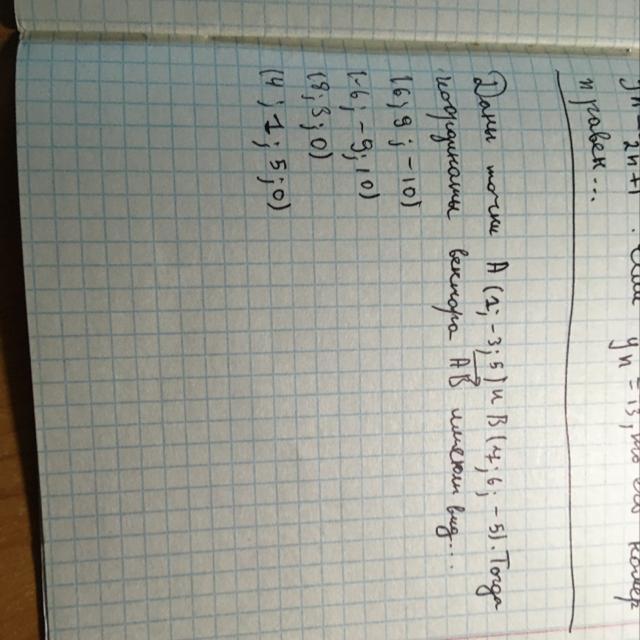 yn = 2n+1. Если yn = 13, то
n равен...
Даны точки A(1; -3; 5) и B(7; 6; -5). Тогда
координаты вектора AB имеют вид...
(6; 9; -10)
(-6; -9; 10)
(8; 3; 0)
(4; 1,5; 0)